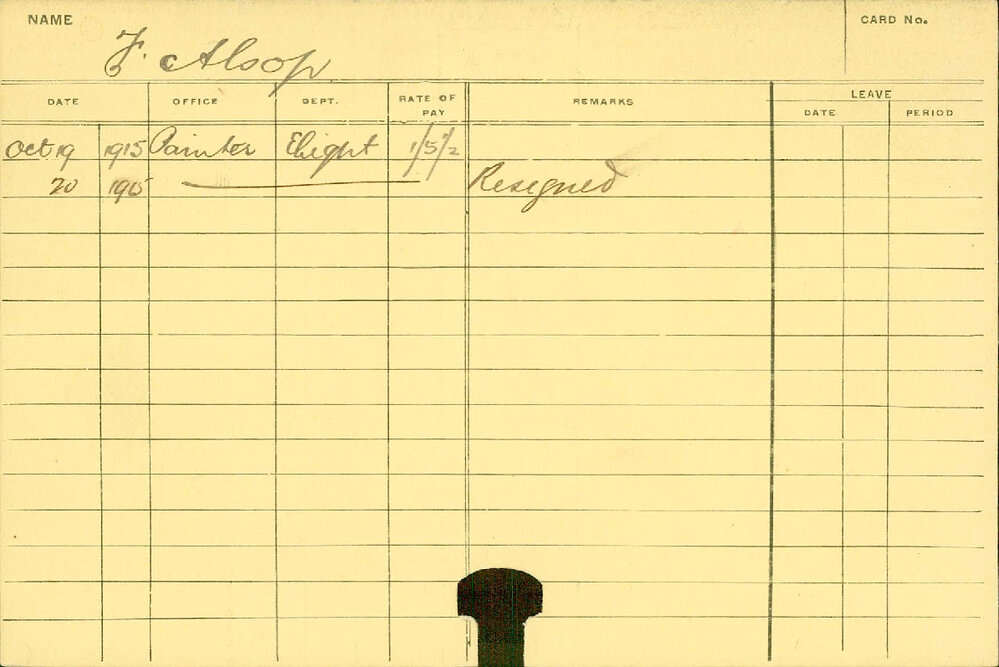 NAME
CARD No.
F. Alsop
DATE OFFICE DEPT. RATE OF PAY REMARKS LEAVE
DATE PERIOD
Oct 19 1915 Painter Elight 1/5½
20 1915 Resigned